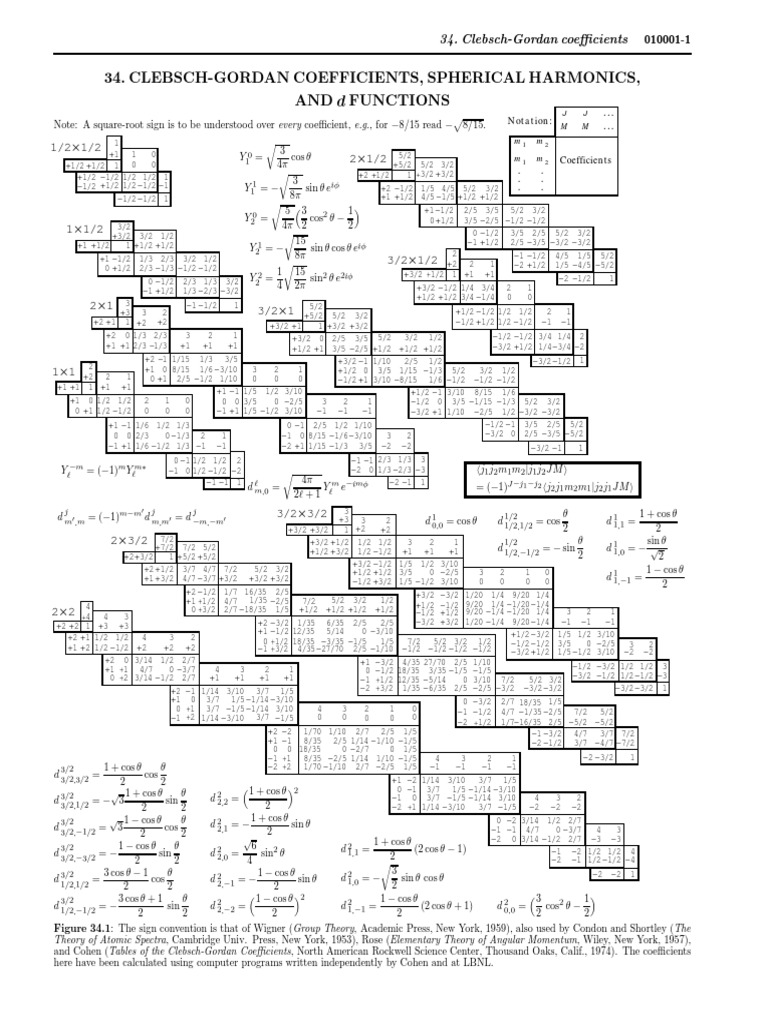 34. Clebsch-Gordan coefficients 010001-1
34. CLEBSCH-GORDAN COEFFICIENTS, SPHERICAL HARMONICS,
AND d FUNCTIONS
Note: A square-root sign is to be understood over every coefficient, e.g., for −8/15 read −√8/15.
Notation:
J J ...
M M ...
m1 m2
m1 m2
. .
. .
. .
Coefficients
1/2×1/2
1
+1 1 0
+1/2 +1/2 1 0 0
+1/2 −1/2 1/2 1/2 1
−1/2 +1/2 1/2 −1/2 −1
−1/2 −1/2 1
Y₁⁰ = √(3/4π) cos θ
Y₁¹ = −√(3/8π) sin θ e^{iφ}
Y₂⁰ = √(5/4π) (3/2 cos²θ − 1/2)
Y₂¹ = −√(15/8π) sin θ cos θ e^{iφ}
Y₂² = 1/4 √(15/2π) sin²θ e^{2iφ}
2×1/2
5/2
+5/2 5/2 3/2
+2 +1/2 1 +3/2 +3/2
+2 −1/2 1/5 4/5 5/2 3/2
+1 +1/2 4/5 −1/5 +1/2 +1/2
+1 −1/2 2/5 3/5 5/2 3/2
0 +1/2 3/5 −2/5 −1/2 −1/2
0 −1/2 3/5 2/5 5/2 3/2
−1 +1/2 2/5 −3/5 −3/2 −3/2
−1 −1/2 4/5 1/5 5/2
−2 +1/2 1/5 −4/5 −5/2
−2 −1/2 1
1×1/2
3/2
+3/2 3/2 1/2
+1 +1/2 1 +1/2 +1/2
+1 −1/2 1/3 2/3 3/2 1/2
0 +1/2 2/3 −1/3 −1/2 −1/2
0 −1/2 2/3 1/3 3/2
−1 +1/2 1/3 −2/3 −3/2
−1 −1/2 1
3/2×1/2
2
+2 2 1
+3/2 +1/2 1 +1 +1
+3/2 −1/2 1/4 3/4 2 1
+1/2 +1/2 3/4 −1/4 0 0
+1/2 −1/2 1/2 1/2 2 1
−1/2 +1/2 1/2 −1/2 −1 −1
−1/2 −1/2 3/4 1/4 2
−3/2 +1/2 1/4 −3/4 −2
−3/2 −1/2 1
2×1
3
+3 3 2
+2 +1 1 +2 +2
+2 0 1/3 2/3 3 2 1
+1 +1 2/3 −1/3 +1 +1 +1
+2 −1 1/15 1/3 3/5
+1 0 8/15 1/6 −3/10 3 2 1
0 +1 2/5 −1/2 1/10 0 0 0
+1 −1 1/5 1/2 3/10
0 0 3/5 0 −2/5 3 2 1
−1 +1 1/5 −1/2 3/10 −1 −1 −1
0 −1 2/5 1/2 1/10
−1 0 8/15 −1/6 −3/10 3 2
−2 +1 1/15 −1/3 3/5 −2 −2
−1 −1 2/3 1/3 3
−2 0 1/3 −2/3 −3
−2 −1 1
3/2×1
5/2
+5/2 5/2 3/2
+3/2 +1 1 +3/2 +3/2
+3/2 0 2/5 3/5 5/2 3/2 1/2
+1/2 +1 3/5 −2/5 +1/2 +1/2 +1/2
+3/2 −1 1/10 2/5 1/2
+1/2 0 3/5 1/15 −1/3 5/2 3/2 1/2
−1/2 +1 3/10 −8/15 1/6 −1/2 −1/2 −1/2
+1/2 −1 3/10 8/15 1/6
−1/2 0 3/5 −1/15 −1/3 5/2 3/2
−3/2 +1 1/10 −2/5 1/2 −3/2 −3/2
−1/2 −1 3/5 2/5 5/2
−3/2 0 2/5 −3/5 −5/2
−3/2 −1 1
1×1
2
+2 2 1
+1 +1 1 +1 +1
+1 0 1/2 1/2 2 1 0
0 +1 1/2 −1/2 0 0 0
+1 −1 1/6 1/2 1/3
0 0 2/3 0 −1/3 2 1
−1 +1 1/6 −1/2 1/3 −1 −1
0 −1 1/2 1/2 2
−1 0 1/2 −1/2 −2
−1 −1 1
Y_ℓ^{−m} = (−1)^m Y_ℓ^{m*}
d^ℓ_{m,0} = √(4π/(2ℓ+1)) Y_ℓ^m e^{−imφ}
⟨j₁j₂m₁m₂|j₁j₂JM⟩
= (−1)^{J−j₁−j₂}⟨j₂j₁m₂m₁|j₂j₁JM⟩
d^j_{m′,m} = (−1)^{m−m′} d^j_{m,m′} = d^j_{−m,−m′}
d¹_{0,0} = cos θ
d^{1/2}_{1/2,1/2} = cos θ/2
d^{1/2}_{1/2,−1/2} = − sin θ/2
d¹_{1,1} = (1 + cos θ)/2
d¹_{1,0} = − sin θ/√2
d¹_{1,−1} = (1 − cos θ)/2
3/2×3/2
3
+3 3 2
+3/2 +3/2 1 +2 +2
+3/2 +1/2 1/2 1/2 3 2 1
+1/2 +3/2 1/2 −1/2 +1 +1 +1
+3/2 −1/2 1/5 1/2 3/10
+1/2 +1/2 3/5 0 −2/5 3 2 1 0
−1/2 +3/2 1/5 −1/2 3/10 0 0 0 0
+3/2 −3/2 1/20 1/4 9/20 1/4
+1/2 −1/2 9/20 1/4 −1/20 −1/4
−1/2 +1/2 9/20 −1/4 −1/20 1/4 3 2 1
−3/2 +3/2 1/20 −1/4 9/20 −1/4 −1 −1 −1
+1/2 −3/2 1/5 1/2 3/10
−1/2 −1/2 3/5 0 −2/5 3 2
−3/2 +1/2 1/5 −1/2 3/10 −2 −2
−1/2 −3/2 1/2 1/2 3
−3/2 −1/2 1/2 −1/2 −3
−3/2 −3/2 1
2×3/2
7/2
+7/2 7/2 5/2
+2 +3/2 1 +5/2 +5/2
+2 +1/2 3/7 4/7 7/2 5/2 3/2
+1 +3/2 4/7 −3/7 +3/2 +3/2 +3/2
+2 −1/2 1/7 16/35 2/5
+1 +1/2 4/7 1/35 −2/5 7/2 5/2 3/2 1/2
0 +3/2 2/7 −18/35 1/5 +1/2 +1/2 +1/2 +1/2
+2 −3/2 1/35 6/35 2/5 2/5
+1 −1/2 12/35 5/14 0 −3/10
0 +1/2 18/35 −3/35 −1/5 1/5 7/2 5/2 3/2 1/2
−1 +3/2 4/35 −27/70 2/5 −1/10 −1/2 −1/2 −1/2 −1/2
+1 −3/2 4/35 27/70 2/5 1/10
0 −1/2 18/35 3/35 −1/5 −1/5
−1 +1/2 12/35 −5/14 0 3/10 7/2 5/2 3/2
−2 +3/2 1/35 −6/35 2/5 −2/5 −3/2 −3/2 −3/2
0 −3/2 2/7 18/35 1/5
−1 −1/2 4/7 −1/35 −2/5 7/2 5/2
−2 +1/2 1/7 −16/35 2/5 −5/2 −5/2
−1 −3/2 4/7 3/7 7/2
−2 −1/2 3/7 −4/7 −7/2
−2 −3/2 1
2×2
4
+4 4 3
+2 +2 1 +3 +3
+2 +1 1/2 1/2 4 3 2
+1 +2 1/2 −1/2 +2 +2 +2
+2 0 3/14 1/2 2/7
+1 +1 4/7 0 −3/7 4 3 2 1
0 +2 3/14 −1/2 2/7 +1 +1 +1 +1
+2 −1 1/14 3/10 3/7 1/5
+1 0 3/7 1/5 −1/14 −3/10
0 +1 3/7 −1/5 −1/14 3/10 4 3 2 1 0
−1 +2 1/14 −3/10 3/7 −1/5 0 0 0 0 0
+2 −2 1/70 1/10 2/7 2/5 1/5
+1 −1 8/35 2/5 1/14 −1/10 −1/5
0 0 18/35 0 −2/7 0 1/5
−1 +1 8/35 −2/5 1/14 1/10 −1/5 4 3 2 1
−2 +2 1/70 −1/10 2/7 −2/5 1/5 −1 −1 −1 −1
+1 −2 1/14 3/10 3/7 1/5
0 −1 3/7 1/5 −1/14 −3/10
−1 0 3/7 −1/5 −1/14 3/10 4 3 2
−2 +1 1/14 −3/10 3/7 −1/5 −2 −2 −2
0 −2 3/14 1/2 2/7
−1 −1 4/7 0 −3/7 4 3
−2 0 3/14 −1/2 2/7 −3 −3
−1 −2 1/2 1/2 4
−2 −1 1/2 −1/2 −4
−2 −2 1
d^{3/2}_{3/2,3/2} = (1 + cos θ)/2 cos θ/2
d^{3/2}_{3/2,1/2} = −√3 (1 + cos θ)/2 sin θ/2
d^{3/2}_{3/2,−1/2} = √3 (1 − cos θ)/2 cos θ/2
d^{3/2}_{3/2,−3/2} = − (1 − cos θ)/2 sin θ/2
d^{3/2}_{1/2,1/2} = (3 cos θ − 1)/2 cos θ/2
d^{3/2}_{1/2,−1/2} = − (3 cos θ + 1)/2 sin θ/2
d²_{2,2} = ((1 + cos θ)/2)²
d²_{2,1} = − (1 + cos θ)/2 sin θ
d²_{2,0} = √6/4 sin²θ
d²_{2,−1} = − (1 − cos θ)/2 sin θ
d²_{2,−2} = ((1 − cos θ)/2)²
d²_{1,1} = (1 + cos θ)/2 (2 cos θ − 1)
d²_{1,0} = −√(3/2) sin θ cos θ
d²_{1,−1} = (1 − cos θ)/2 (2 cos θ + 1)
d²_{0,0} = (3/2 cos²θ − 1/2)
Figure 34.1: The sign convention is that of Wigner (Group Theory, Academic Press, New York, 1959), also used by Condon and Shortley (The
Theory of Atomic Spectra, Cambridge Univ. Press, New York, 1953), Rose (Elementary Theory of Angular Momentum, Wiley, New York, 1957),
and Cohen (Tables of the Clebsch-Gordan Coefficients, North American Rockwell Science Center, Thousand Oaks, Calif., 1974). The coefficients
here have been calculated using computer programs written independently by Cohen and at LBNL.